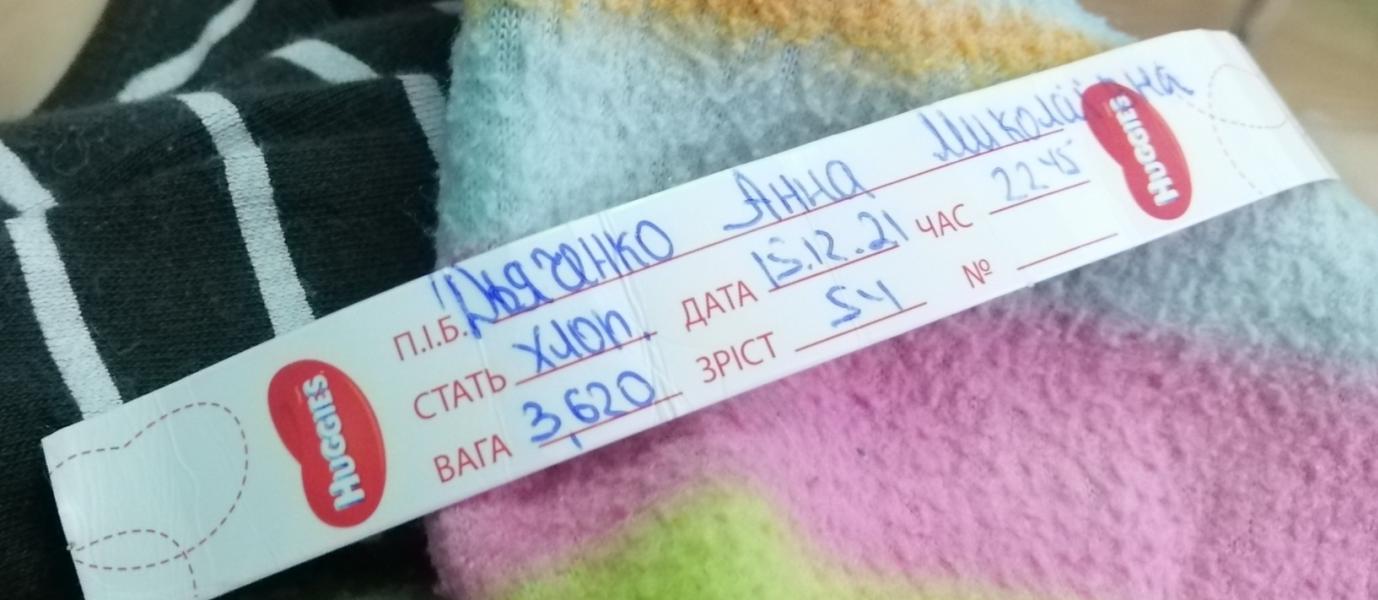 HUGGIES
П.І.Б. Дьяченко Анна Миколаївна
СТАТЬ хлоп. ДАТА 15.12.21 ЧАС 22 45
ВАГА 3,620 ЗРІСТ 54 №
HUGGIES